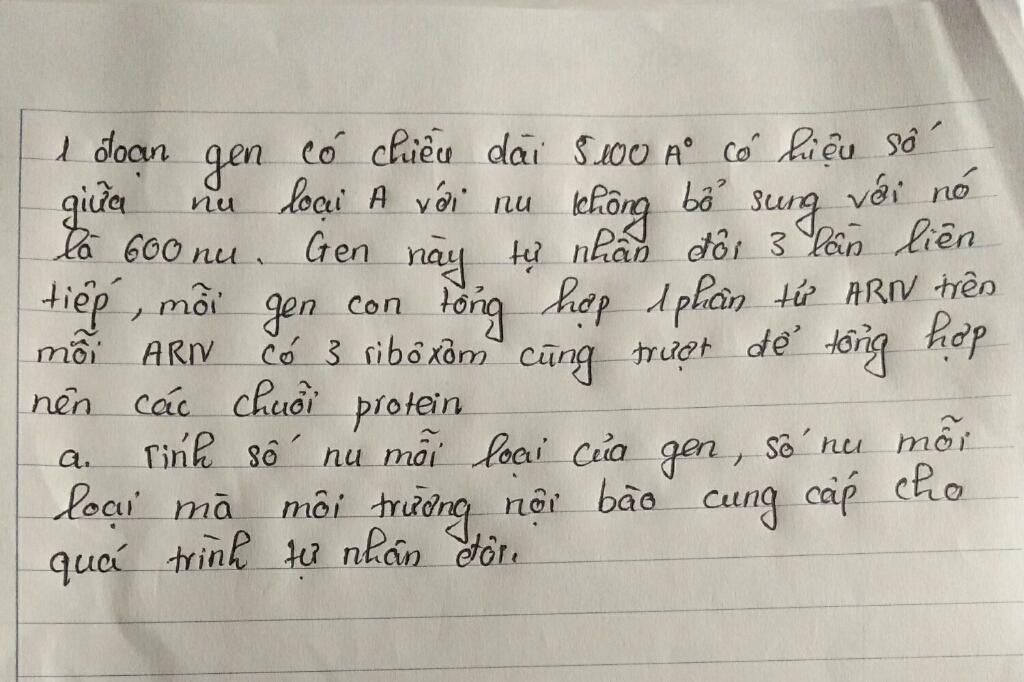 1 đoạn gen có chiều dài 5100 A° có hiệu số
giữa nu loại A với nu không bổ sung với nó
là 600 nu. Gen này tự nhân đôi 3 lần liên
tiếp, mỗi gen con tổng hợp 1 phân tử ARN trên
mỗi ARN có 3 ribôxôm cùng trượt để tổng hợp
nên các chuỗi protein
a. Tính số nu mỗi loại của gen, số nu mỗi
loại mà môi trường nội bào cung cấp cho
quá trình tự nhân đôi.